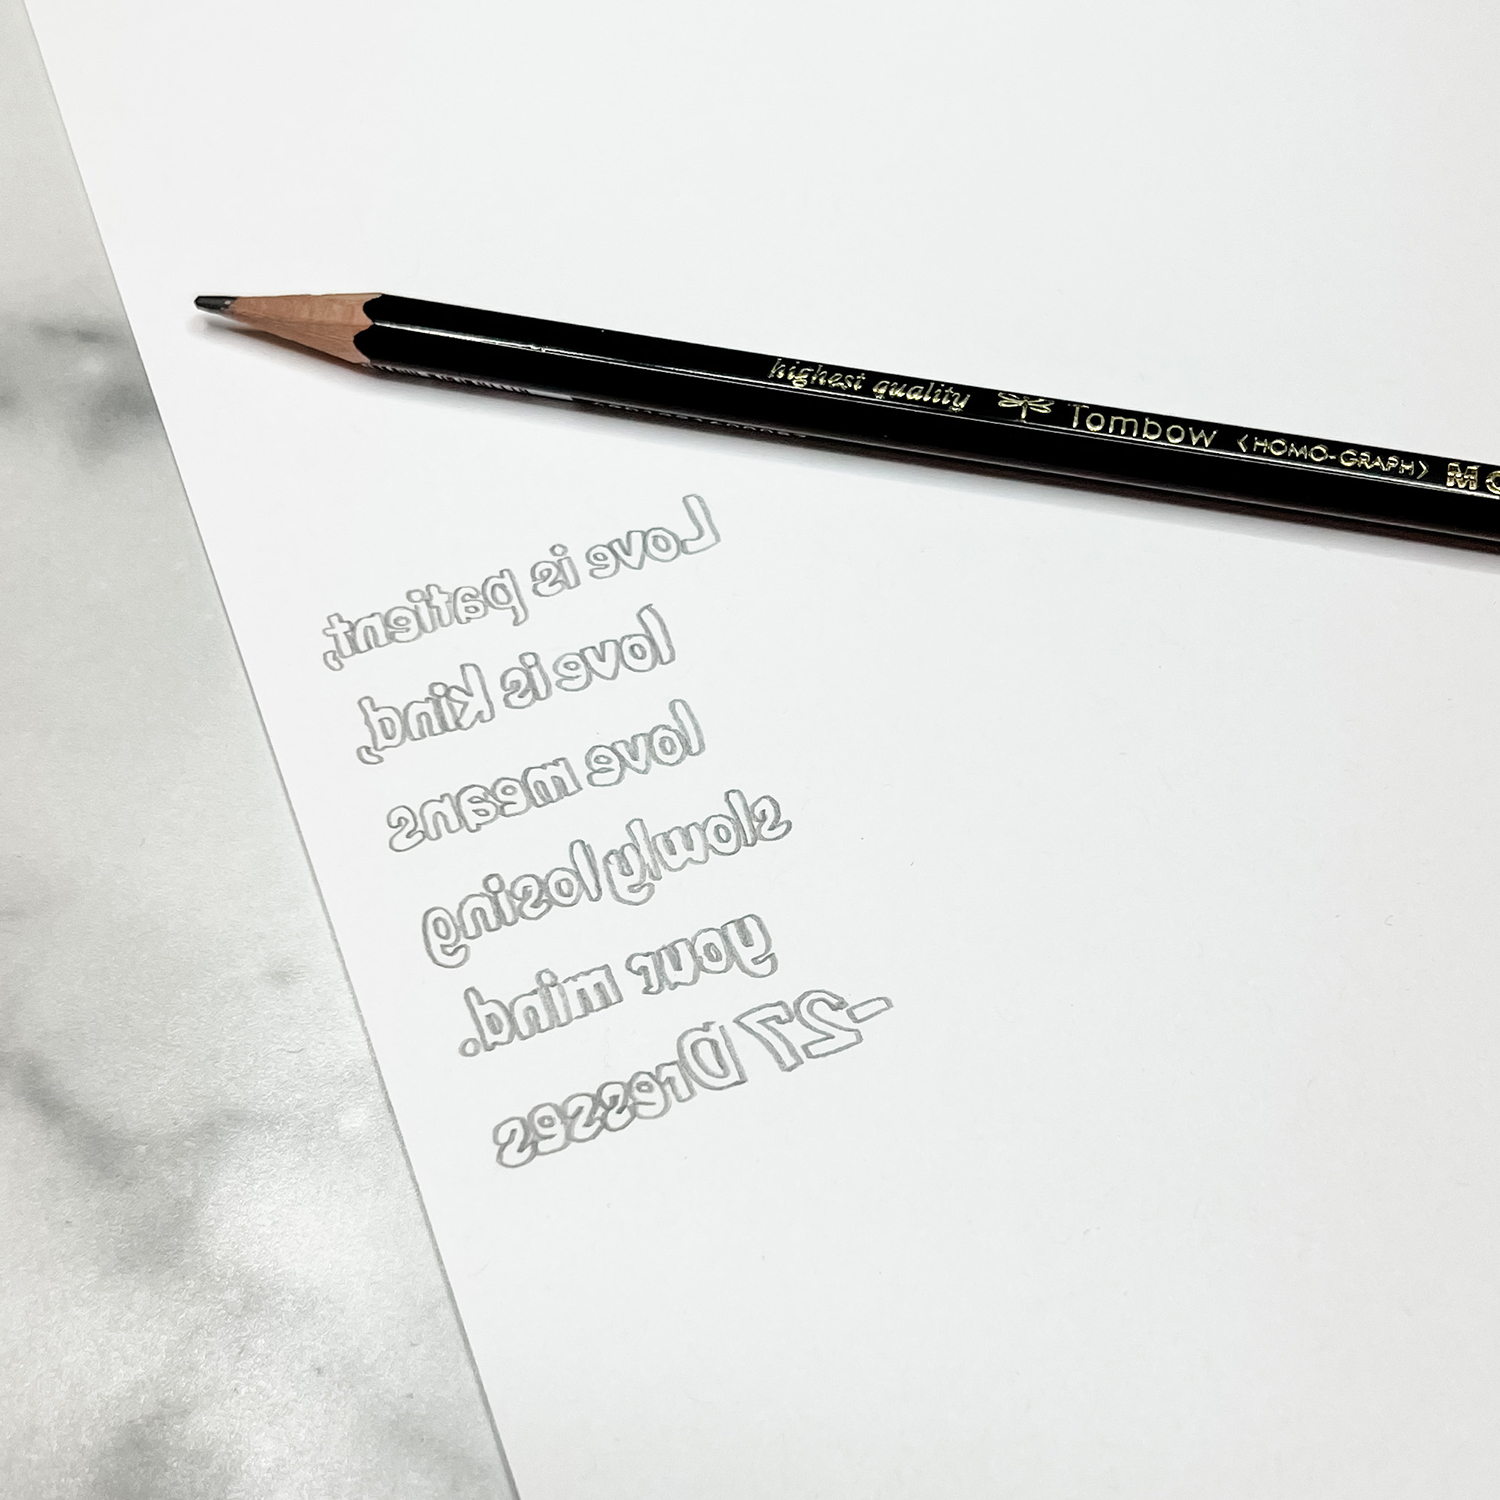 highest quality Tombow <HOMO-GRAPH> MO
Love is patient,
love is kind,
love means
slowly losing
your mind.
-27 Dresses